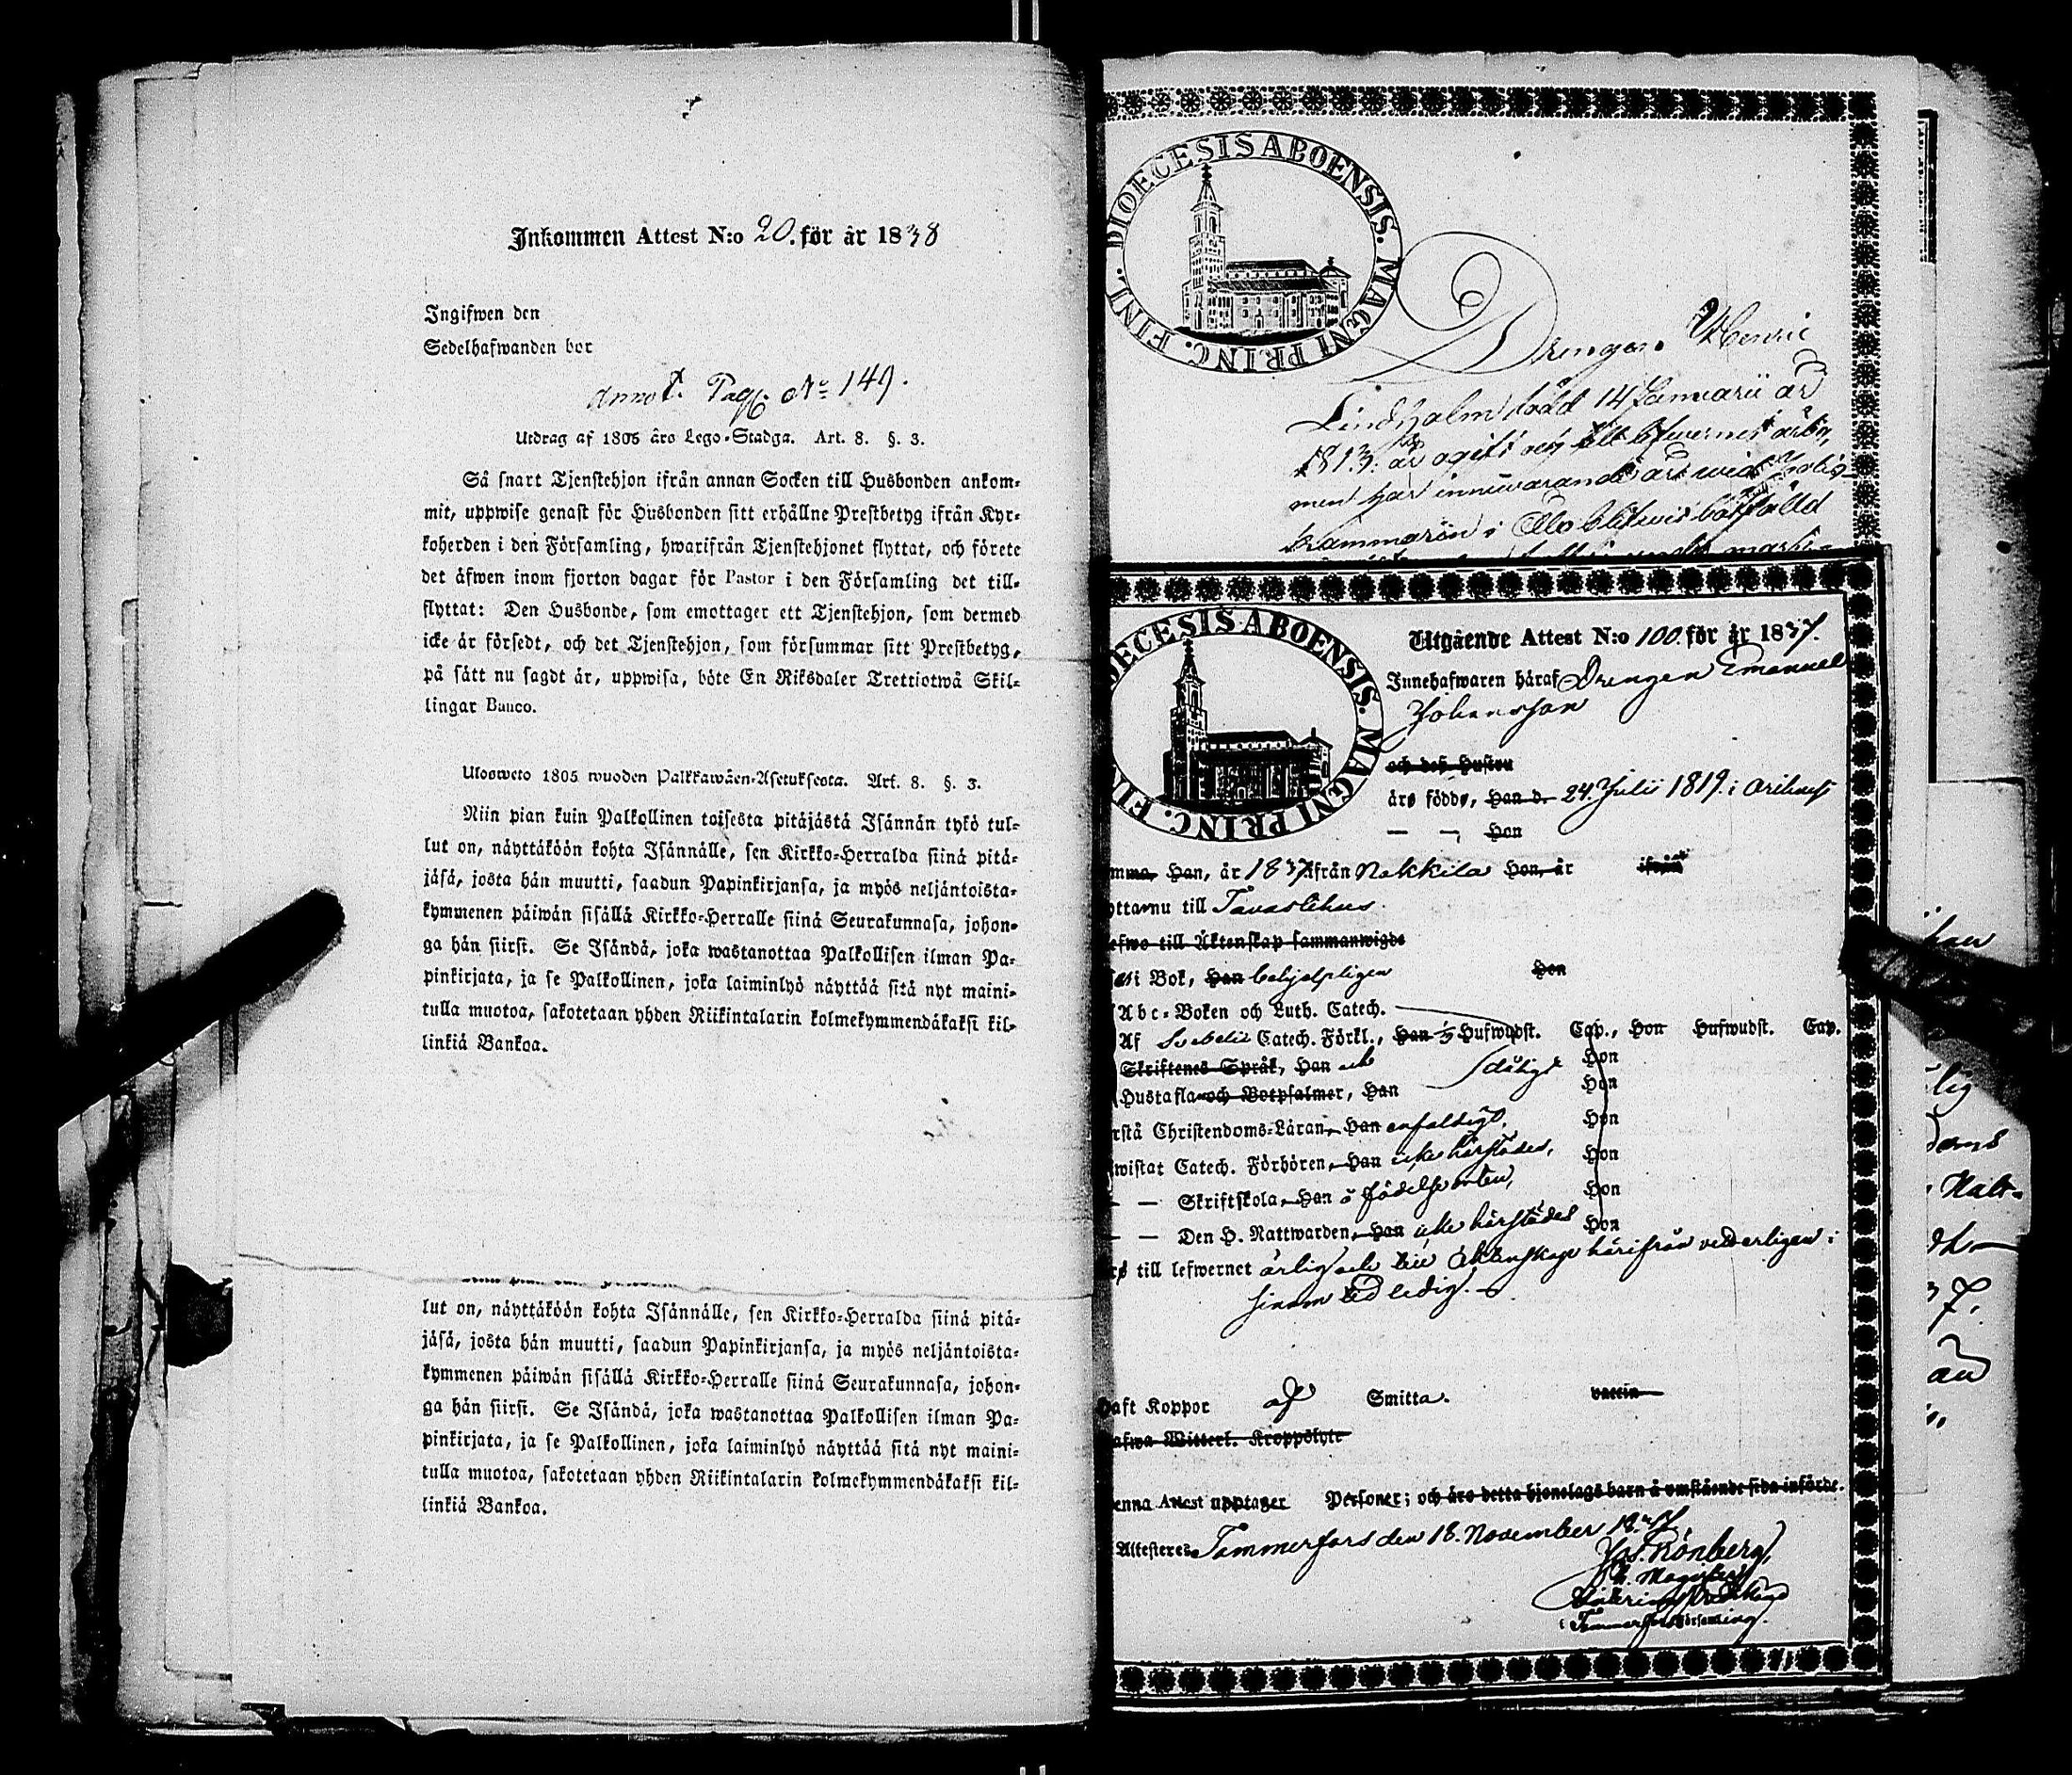 Inkommen Attest N:o 20. för år 1838
Ingifwen den
Sedelhafwanden bor
Annot. Pag. No 149.
Utdrag af 1805 års Lego-Stadga. Art. 8. §. 3.
Så snart Tjenstehjon ifrån annan Socken till Husbonden ankom-
mit, uppwise genast för Husbonden sitt erhållne Prestbetyg ifrån Kyr-
koherden i den Församling, hwarifrån Tjenstehjonet flyttat, och förete
det äfwen inom fjorton dagar för Pastor i den Församling det till-
flyttat: Den Husbonde, som emottager ett Tjenstehjon, som dermed
icke är försedt, och det Tjenstehjon, som försummar sitt Prestbetyg,
på sätt nu sagdt är, uppwisa, böte En Riksdaler Trettiotwå Skil-
lingar Banco.
Ulosweto 1805 wuoden Palkkawäen-Asetuksesta. Art. 8. §. 3.
Niin pian kuin Palkollinen toisesta pitäjästä Isännän tykö tul-
lut on, näyttäköön kohta Isännälle, sen Kirkko-Herralda siinä pitä-
jäsä, josta hän muutti, saadun Papinkirjansa, ja myös neljäntoista-
kymmenen päiwän sisällä Kirkko-Herralle siinä Seurakunnasa, johon-
ga hän siirsi. Se Isändä, joka wastanottaa Palkollisen ilman Pa-
pinkirjata, ja se Palkollinen, joka laiminlyö näyttää sitä nyt maini-
tulla muotoa, sakotetaan yhden Riikintalarin kolmekymmendäkaksi kil-
linkiä Bankoa.
lut on, näyttäköön kohta Isännälle, sen Kirkko-Herralda siinä pitä-
jäsä, josta hän muutti, saadun Papinkirjansa, ja myös neljäntoista-
kymmenen päiwän sisällä Kirkko-Herralle siinä Seurakunnasa, johon-
ga hän siirsi. Se Isändä, joka wastanottaa Palkollisen ilman Pa-
pinkirjata, ja se Palkollinen, joka laiminlyö näyttää sitä nyt maini-
tulla muotoa, sakotetaan yhden Riikintalarin kolmekymmendäkaksi kil-
linkiä Bankoa.
DIOECESIS ABOENSIS. MAGNI PRINC. FINL.
Drengen Henric
Lindholm född 14 Januarii år
1813. är
men har innewarande år wid
kammarön i Åbo
OECESIS ABOENSIS. MAGNI PRINC. FIN
Utgående Attest N:o 100. för år 1837.
Innehafwaren häraf Drengen Emanuel
Johansson
och deß Hustru
äro födde, Han d. 24. Julii 1819. i
— — , Hon
mma, Han, år 1837 ifrån Nakkila Hon, år ifrån
ottar nu till Tavastehus.
efwo till Äktenskap sammanwigde
i Bok, Han behjelpligen Hon
Abc-Boken och Luth. Catech.
Af Svebelii Catech. Förkl., Han ½ Hufwudst. Cap., Hon Hufwudst. Cap.
Skriftenes Språk, Han och Hon
Hustafla och Botpsalmer, Han dåligt Hon
rstå Christendoms-Läran, Han enfaldigt, Hon
wistat Catech. Förhören, Han icke härstädes, Hon
— — Skriftskola, Han å födelseorten, Hon
— — Den H. Nattwarden, Han icke härstädes Hon
till lefwernet ärlig och till äktenskap härifrån
ledig.
Haft Koppor af Smitta. vaccin
afwa Witterl. Kroppslyte
enna Attest upptager Personer; och äro detta hjonelags barn å omstående sida införde.
Attesteres Tammerfors den 18. November 1837
Jos. Grönberg,
i Tammerfors Församling.